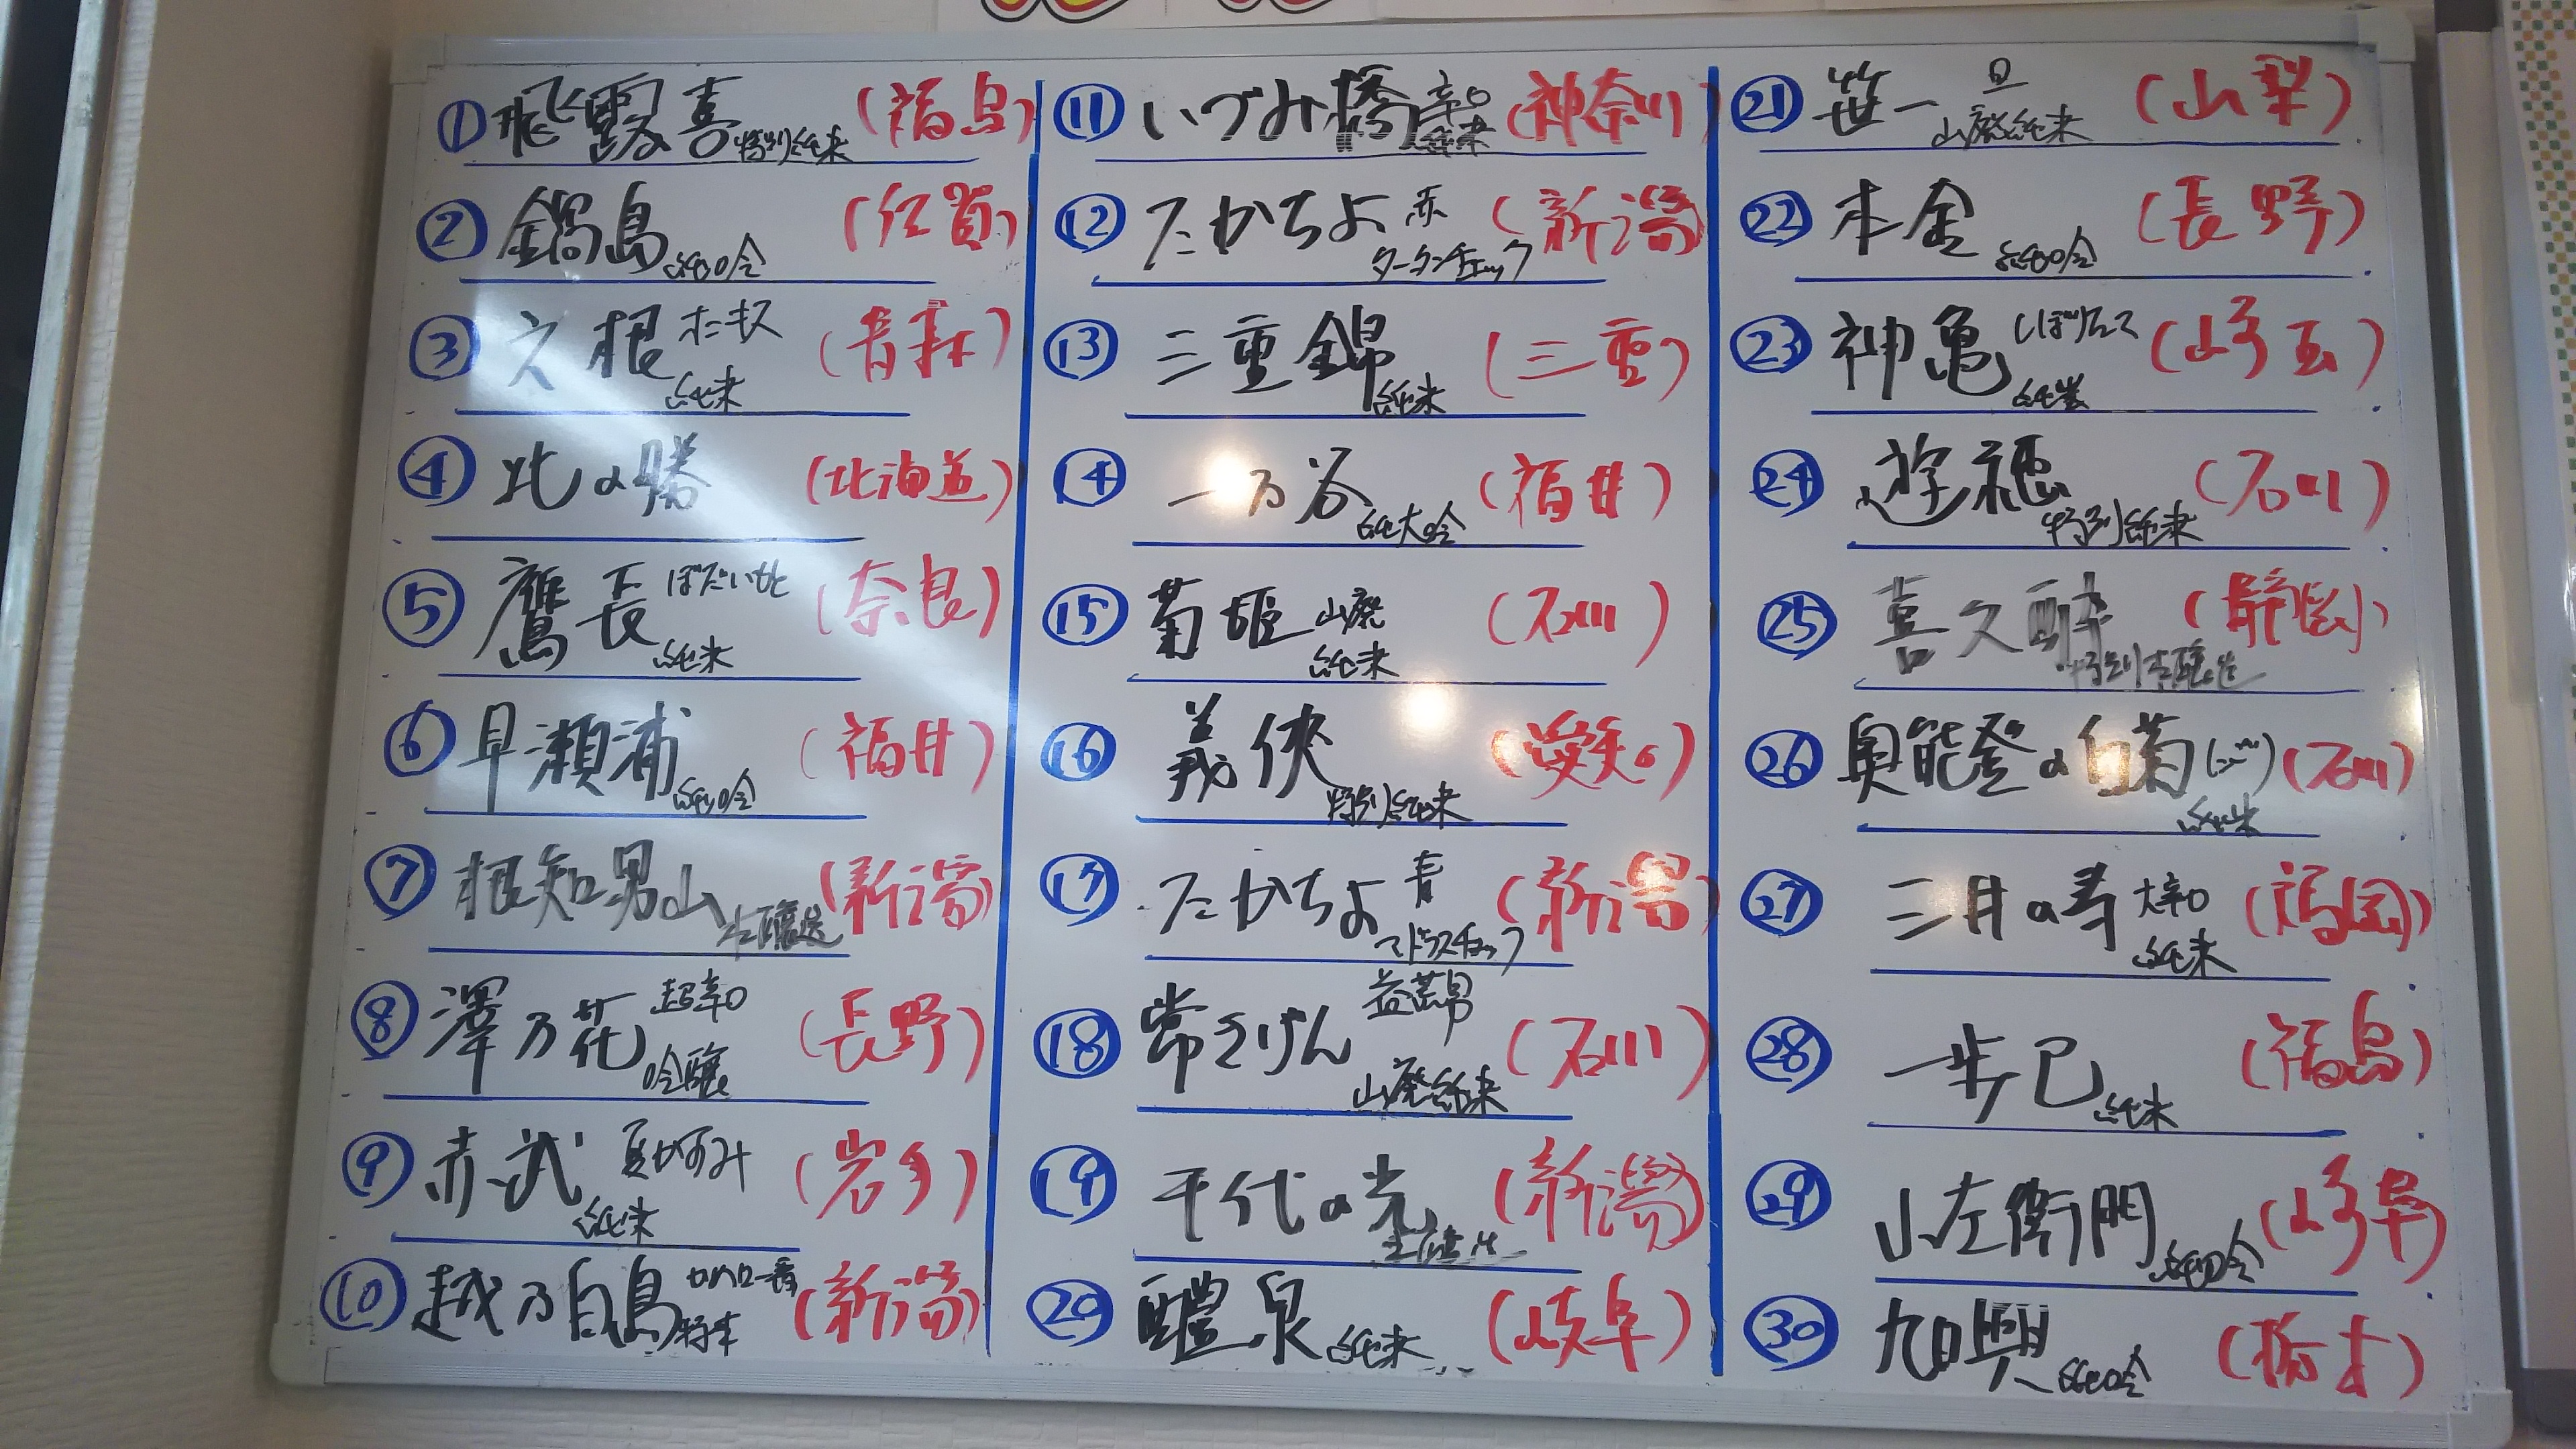 ① 飛露喜 特別純米 (福島)
② 鍋島 純吟 (佐賀)
③ 六根 オニキス 純米 (青森)
④ 北の勝 (北海道)
⑤ 鷹長 ぼだいもと 純米 (奈良)
⑥ 早瀬浦 純吟 (福井)
⑦ 根知男山 本醸造 (新潟)
⑧ 澤乃花 超辛口 吟醸 (長野)
⑨ 赤武 夏がすみ 純米 (岩手)
⑩ 越乃白鳥 カメロ一番 特本 (新潟)
⑪ いづみ橋 辛口 純米 (神奈川)
⑫ たかちよ 赤 タータンチェック (新潟)
⑬ 三重錦 純米 (三重)
⑭ 一乃谷 純大吟 (福井)
⑮ 菊姫 山廃 純米 (石川)
⑯ 義侠 特別純米 (愛知)
⑰ たかちよ 青 マドラスチェック (新潟)
⑱ 常きげん 益荒男 山廃純米 (石川)
⑲ 千代の光 (新潟)
⑳ 醴泉 純米 (岐阜)
㉑ 笹一 旦 山廃純米 (山梨)
㉒ 本金 純吟 (長野)
㉓ 神亀 しぼりたて 純米 (埼玉)
㉔ 遊穂 特別純米 (石川)
㉕ 喜久酔 特別本醸造 (静岡)
㉖ 奥能登の白菊 純米 (石川)
㉗ 三井の寿 大辛口 純米 (福岡)
㉘ 一歩己 純米 (福島)
㉙ 小左衛門 純吟 (岐阜)
㉚ 旭興 純吟 (栃木)